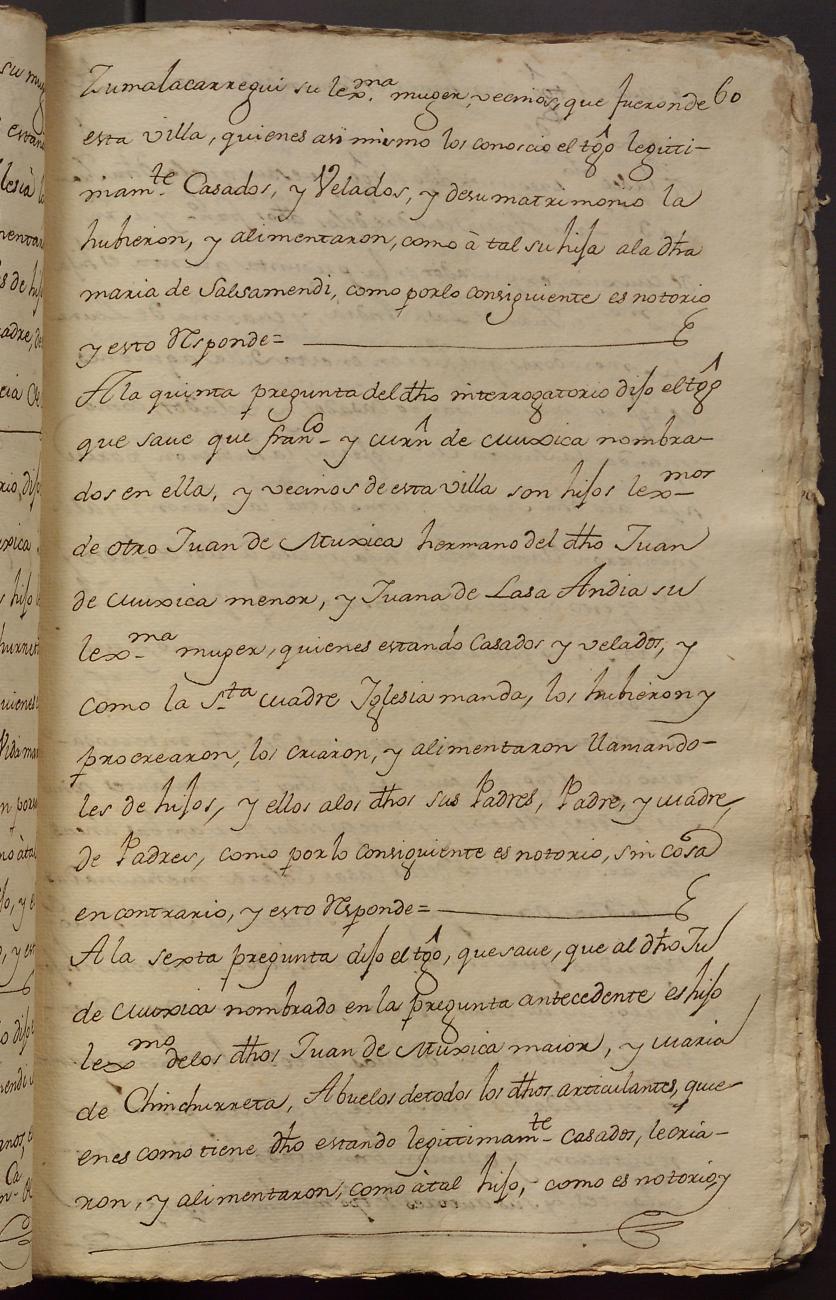 Zumalacarregui su lexma. muger, vecinos, que fueron de 60
esta villa, quienes asi mismo los conoscio el tgo legitti-
mamte. Casados, y Velados, y de su matrimonio la
hubieron, y alimentaron, como à tal su hija a la dha
maria de Salsamendi, como por lo consiguiente es notorio
y esto Responde=
A la quinta pregunta del dho interrogatorio dijo el tgo
que save que franco- y Curn de Muxica nombra-
dos en ella, y vecinos de esta villa son hijos lexmos
de otro Juan de Muxica hermano del dho Juan
de Muxica menor, y Juana de Lasa Andia su
lexma- muger, quienes estando Casados y velados, y
como la Sta Madre Iglesia manda, los hubieron y
procrearon, los criaron, y alimentaron llamando-
les de hijos, y ellos a los dhos sus Padres, Padre, y Madre,
de Padres, como por lo consiguiente es notorio, sin cosa
en contrario, y esto Responde=
A la sexta pregunta dijo el tgo, que save, que al dho Ju
de Muxica nombrado en la pregunta antecedente es hijo
lexmo de los dhos Juan de Muxica maior, y Maria
de Chinchurreta, Abuelos de todos los dhos articulantes, quie-
enes como tiene dho estando legittimamte- Casados, le cria-
ron, y alimentaron, como à tal hijo, como es notorio, y